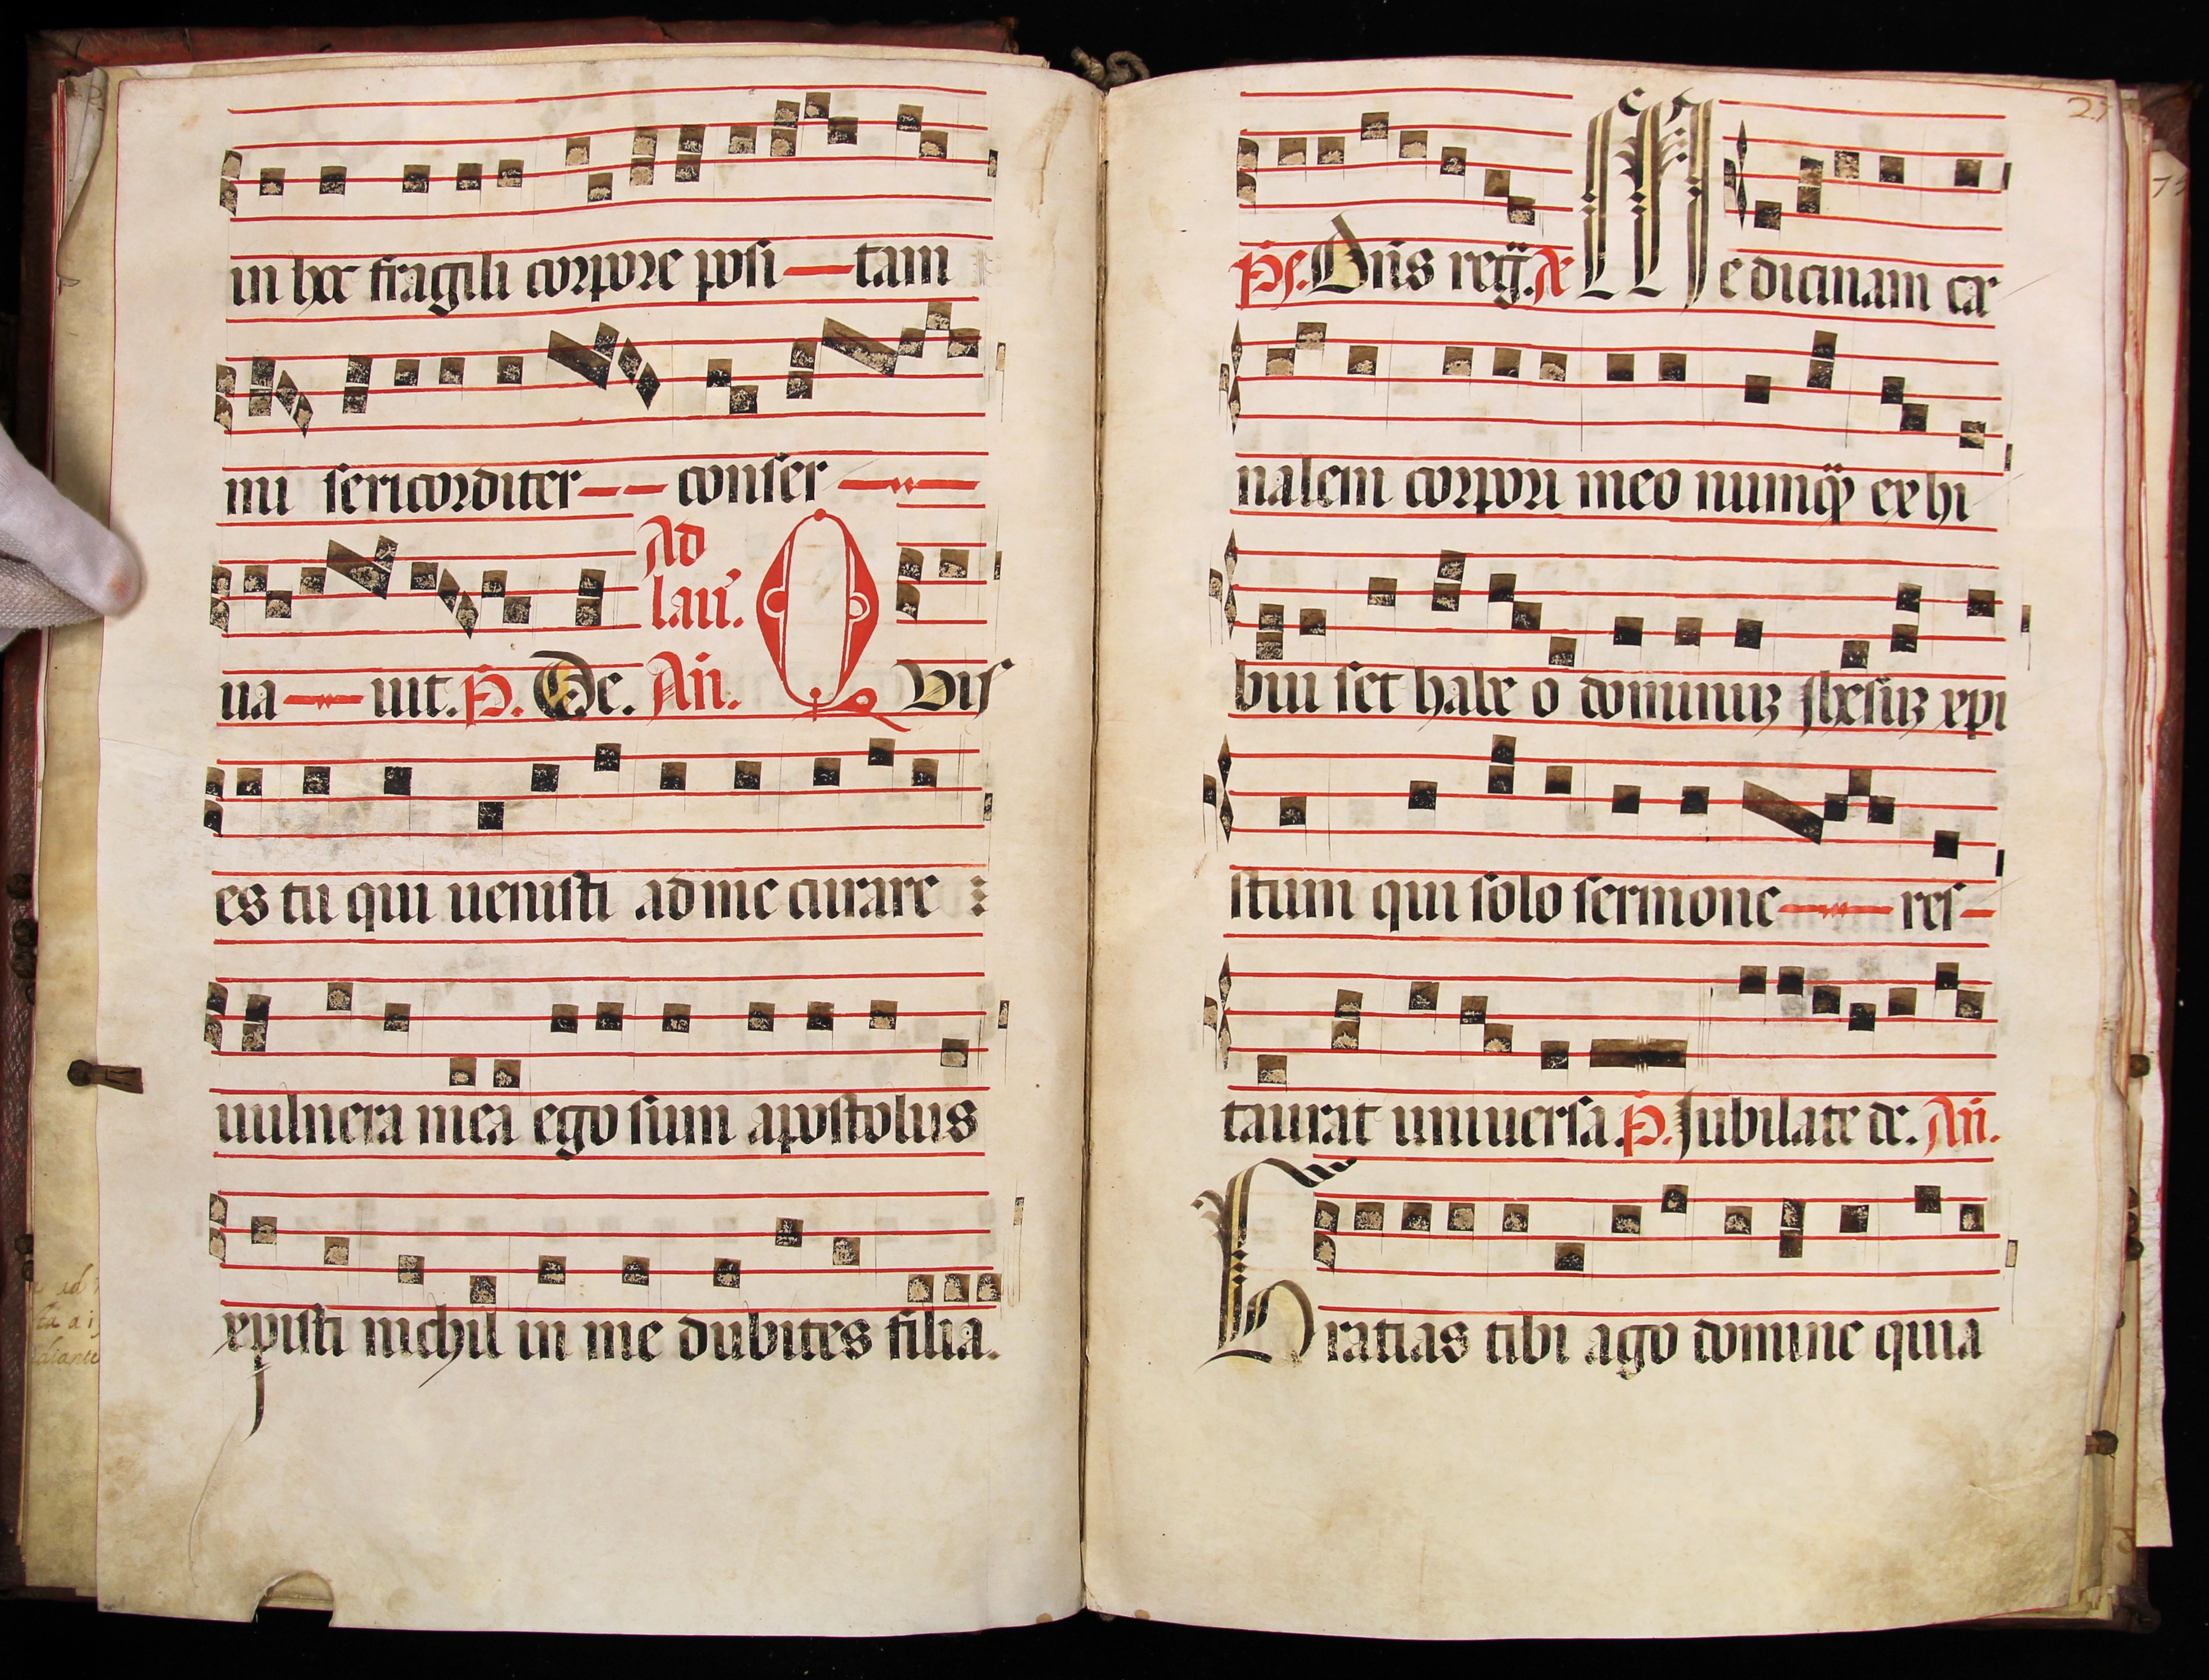 in hoc fragili corpore posi — tam
mi sericorditer — — conser —
Ad
lau.
ua — uit. P. De. Añ. Quis
es tu qui uenisti ad me curare
uulnera mea ego sum apostolus
xpisti nichil in me dubites filia.
27
Ps. Dñs reg. Medicinam car
nalem corpori meo numq exhi
bui set habeo dominum xpi
stum qui solo sermone — res —
taurat uniuersa. P. Jubilate de. Añ.
Gratias tibi ago domine quia